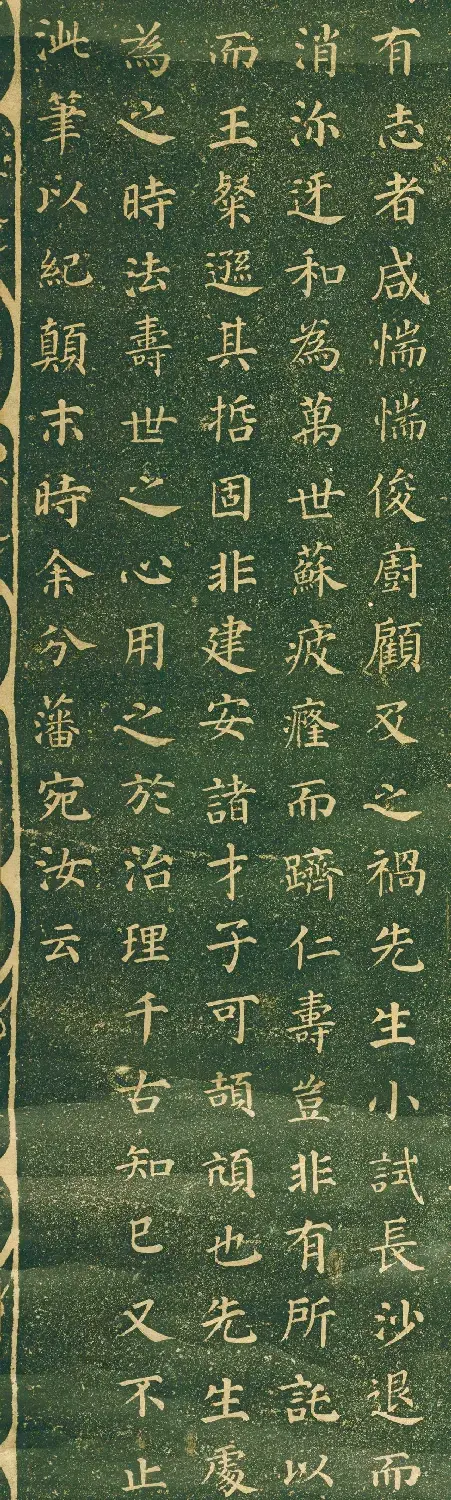 有志者咸惴惴俊廚顧及之禍先生小試長沙退而
消沴迓和為萬世蘇疲癃而躋仁壽豈非有所託以
而王粲遜其哲固非建安諸才子可頡頏也先生處
為之時法壽世之心用之於治理千古知已又不止
泚筆以紀顛末時余分藩宛汝云